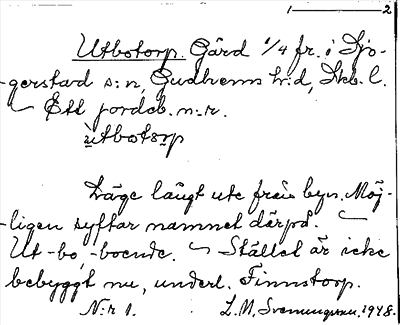 1 — 2
Utbotorp. Gård 1/4 fr. i Sjö-
gerstad s:n, Gudhems h:d, Skb. l.
Ett jordeb. n:r.
ùtbotɷrp
Läge långt ute från byn. Möj-
ligen syftar namnet därpå.
Ut-bo, -boende. Stället är icke
bebyggt nu, underl. Finnstorp.
N:r 1. L. M. Svenungsson. 1918.